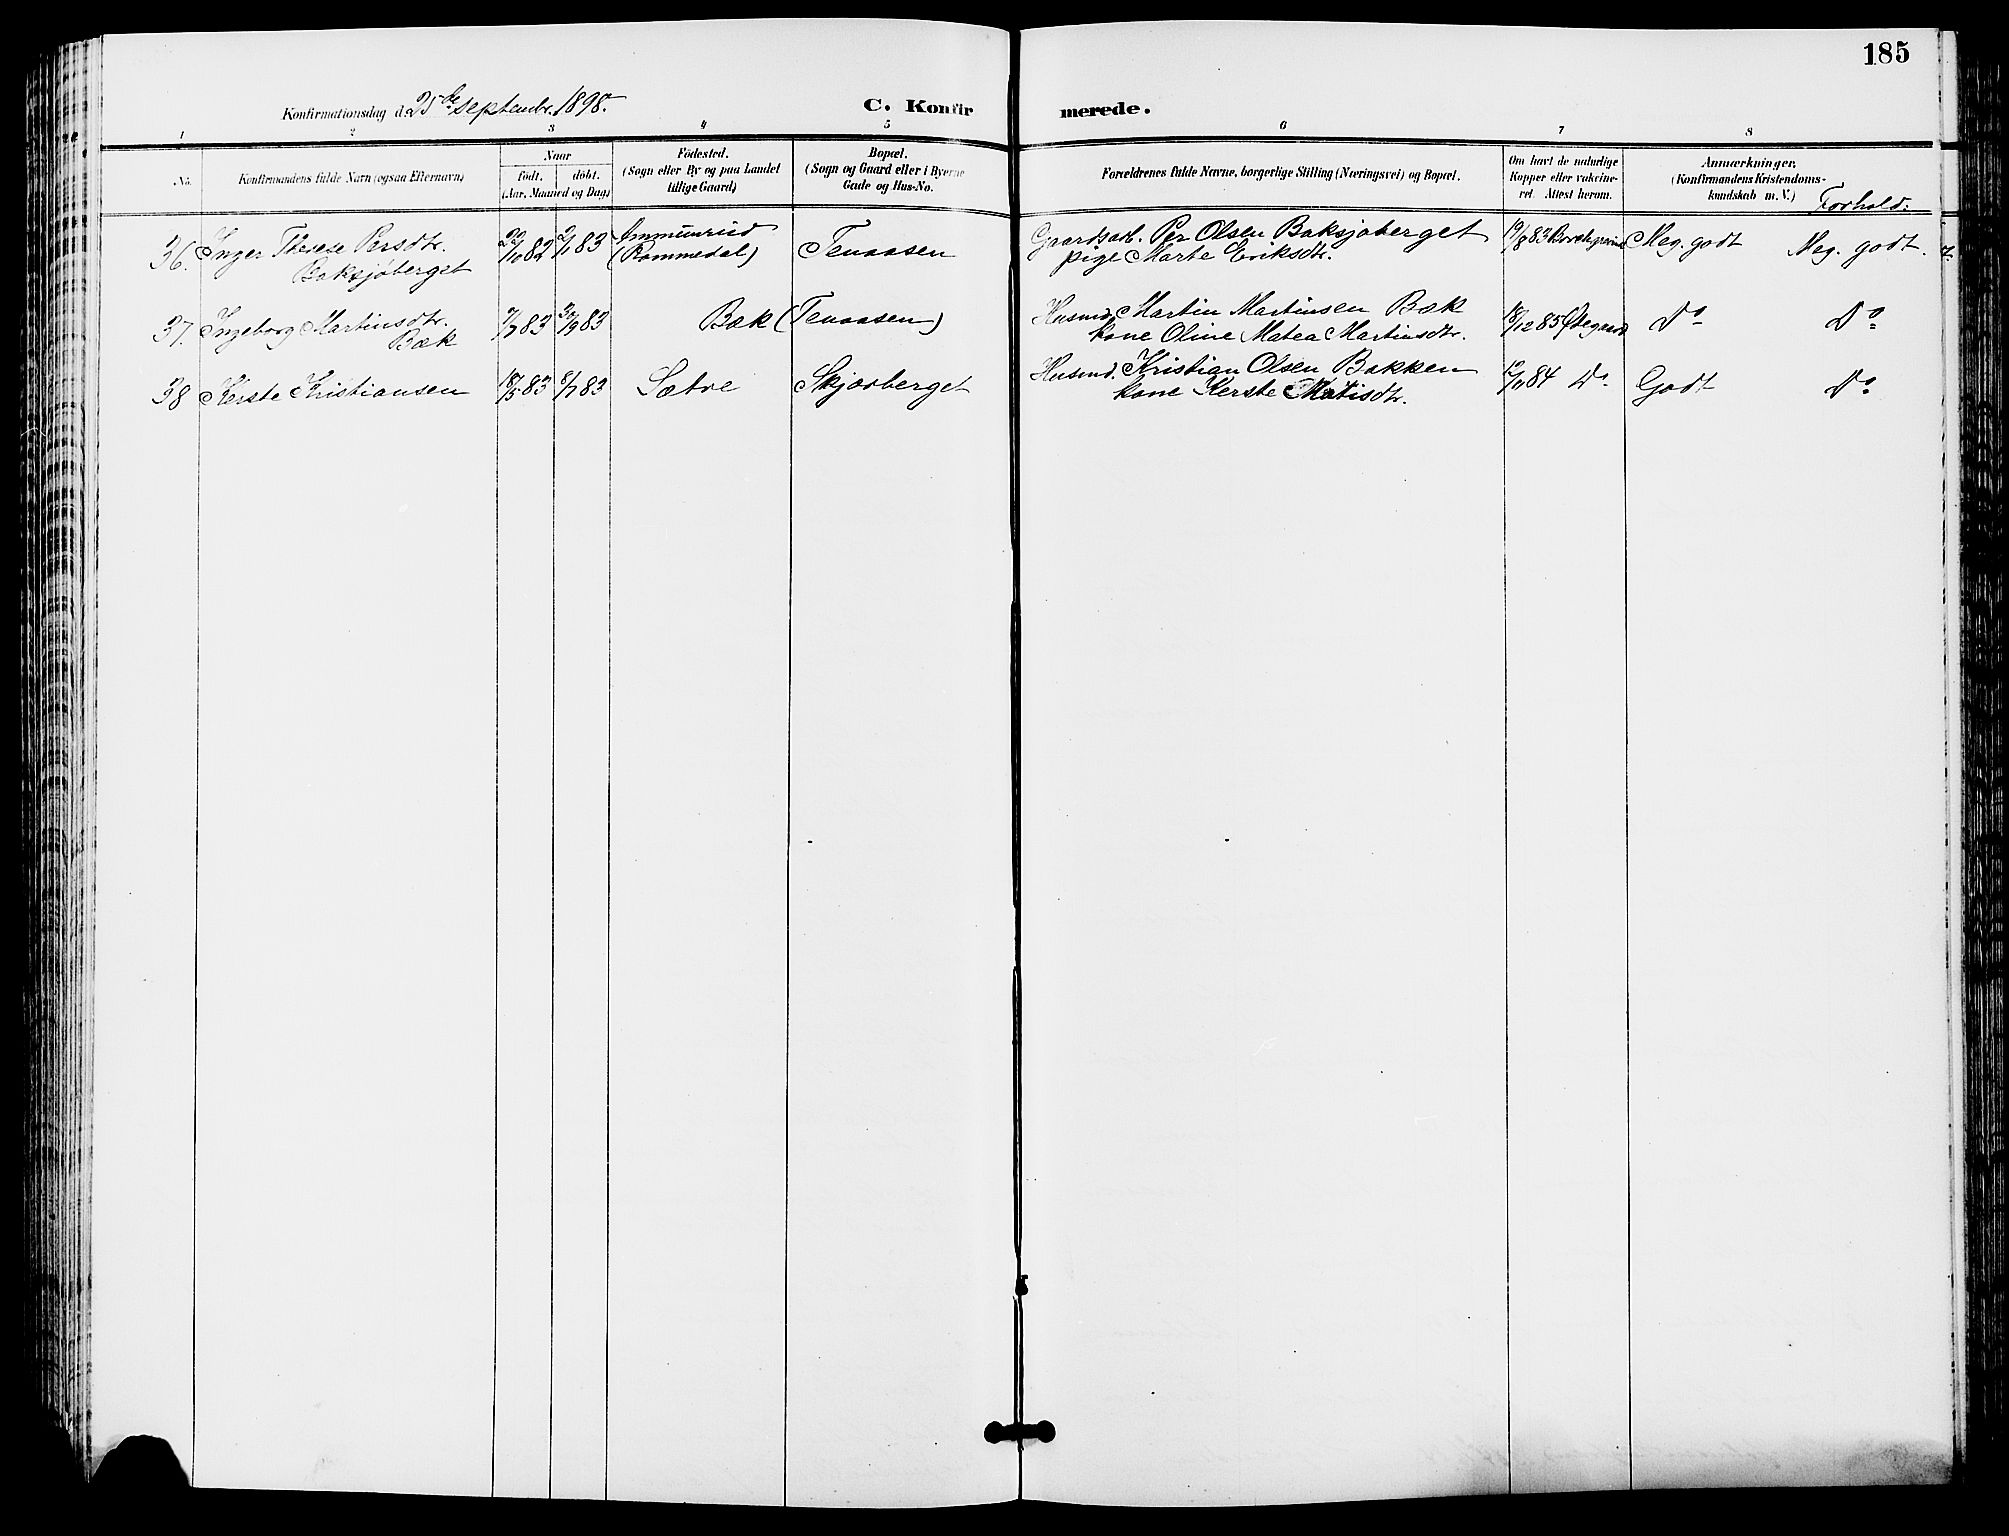 185
Konfirmationsdag d. 25de septembr. 1898.
C. Konfir merede.
1 2 3 4 5 6 7 8
No. Konfirmandens fulde Navn (ogsaa Efternavn) Naar födt. döbt. (Aar, Maaned og Dag) Födested. (Sogn eller By og paa Landet tillige Gaard) Bopæl. (Sogn og Gaard eller i Byerne Gade og Hus-No. Forældrenes fulde Navne, borgerlige Stilling (Næringsvei) og Bopæl. Om havt de naturlige Kopper eller vakcineret. Attest herom. Anmærkninger. (Konfirmandens Kristendomskundskab m. V.) Forhold:
36. Inger Therese Persdtr. 22/10 82 2/1 83 Ommundrud Tenaasen Gaardsarb. Per Olsen Baksjøberget 19/8 83 Borchgrevink Meg. godt Meg. godt.
Baksjøberget (Rommedal) pige Marte Eriksdtr.
37. Ingeborg Martinsdtr. 7/7 83 30/9 83 Bæk (Tenaasen) Husmd. Martin Martinsen Bæk 18/12 85 Ødegaard Do Do
Bæk kone Oline Matea Martinsdtr.
38 Kerste Kristiansen 18/5 83 8/7 83 Sætre Skjærberget Husmd. Kristian Olsen Bakken 12/11 84 Do. Godt Do
kone Kerste Matisdtr.